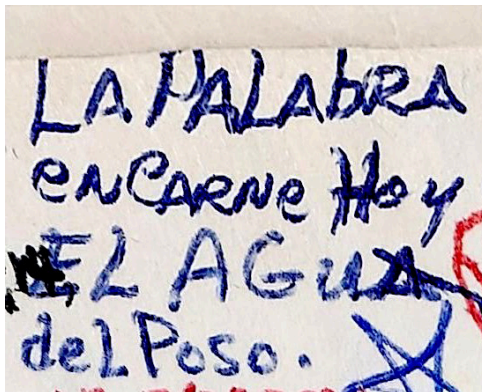 LA PALAbRA
eNCARNe Hoy
EL AGUA
deL Poso.